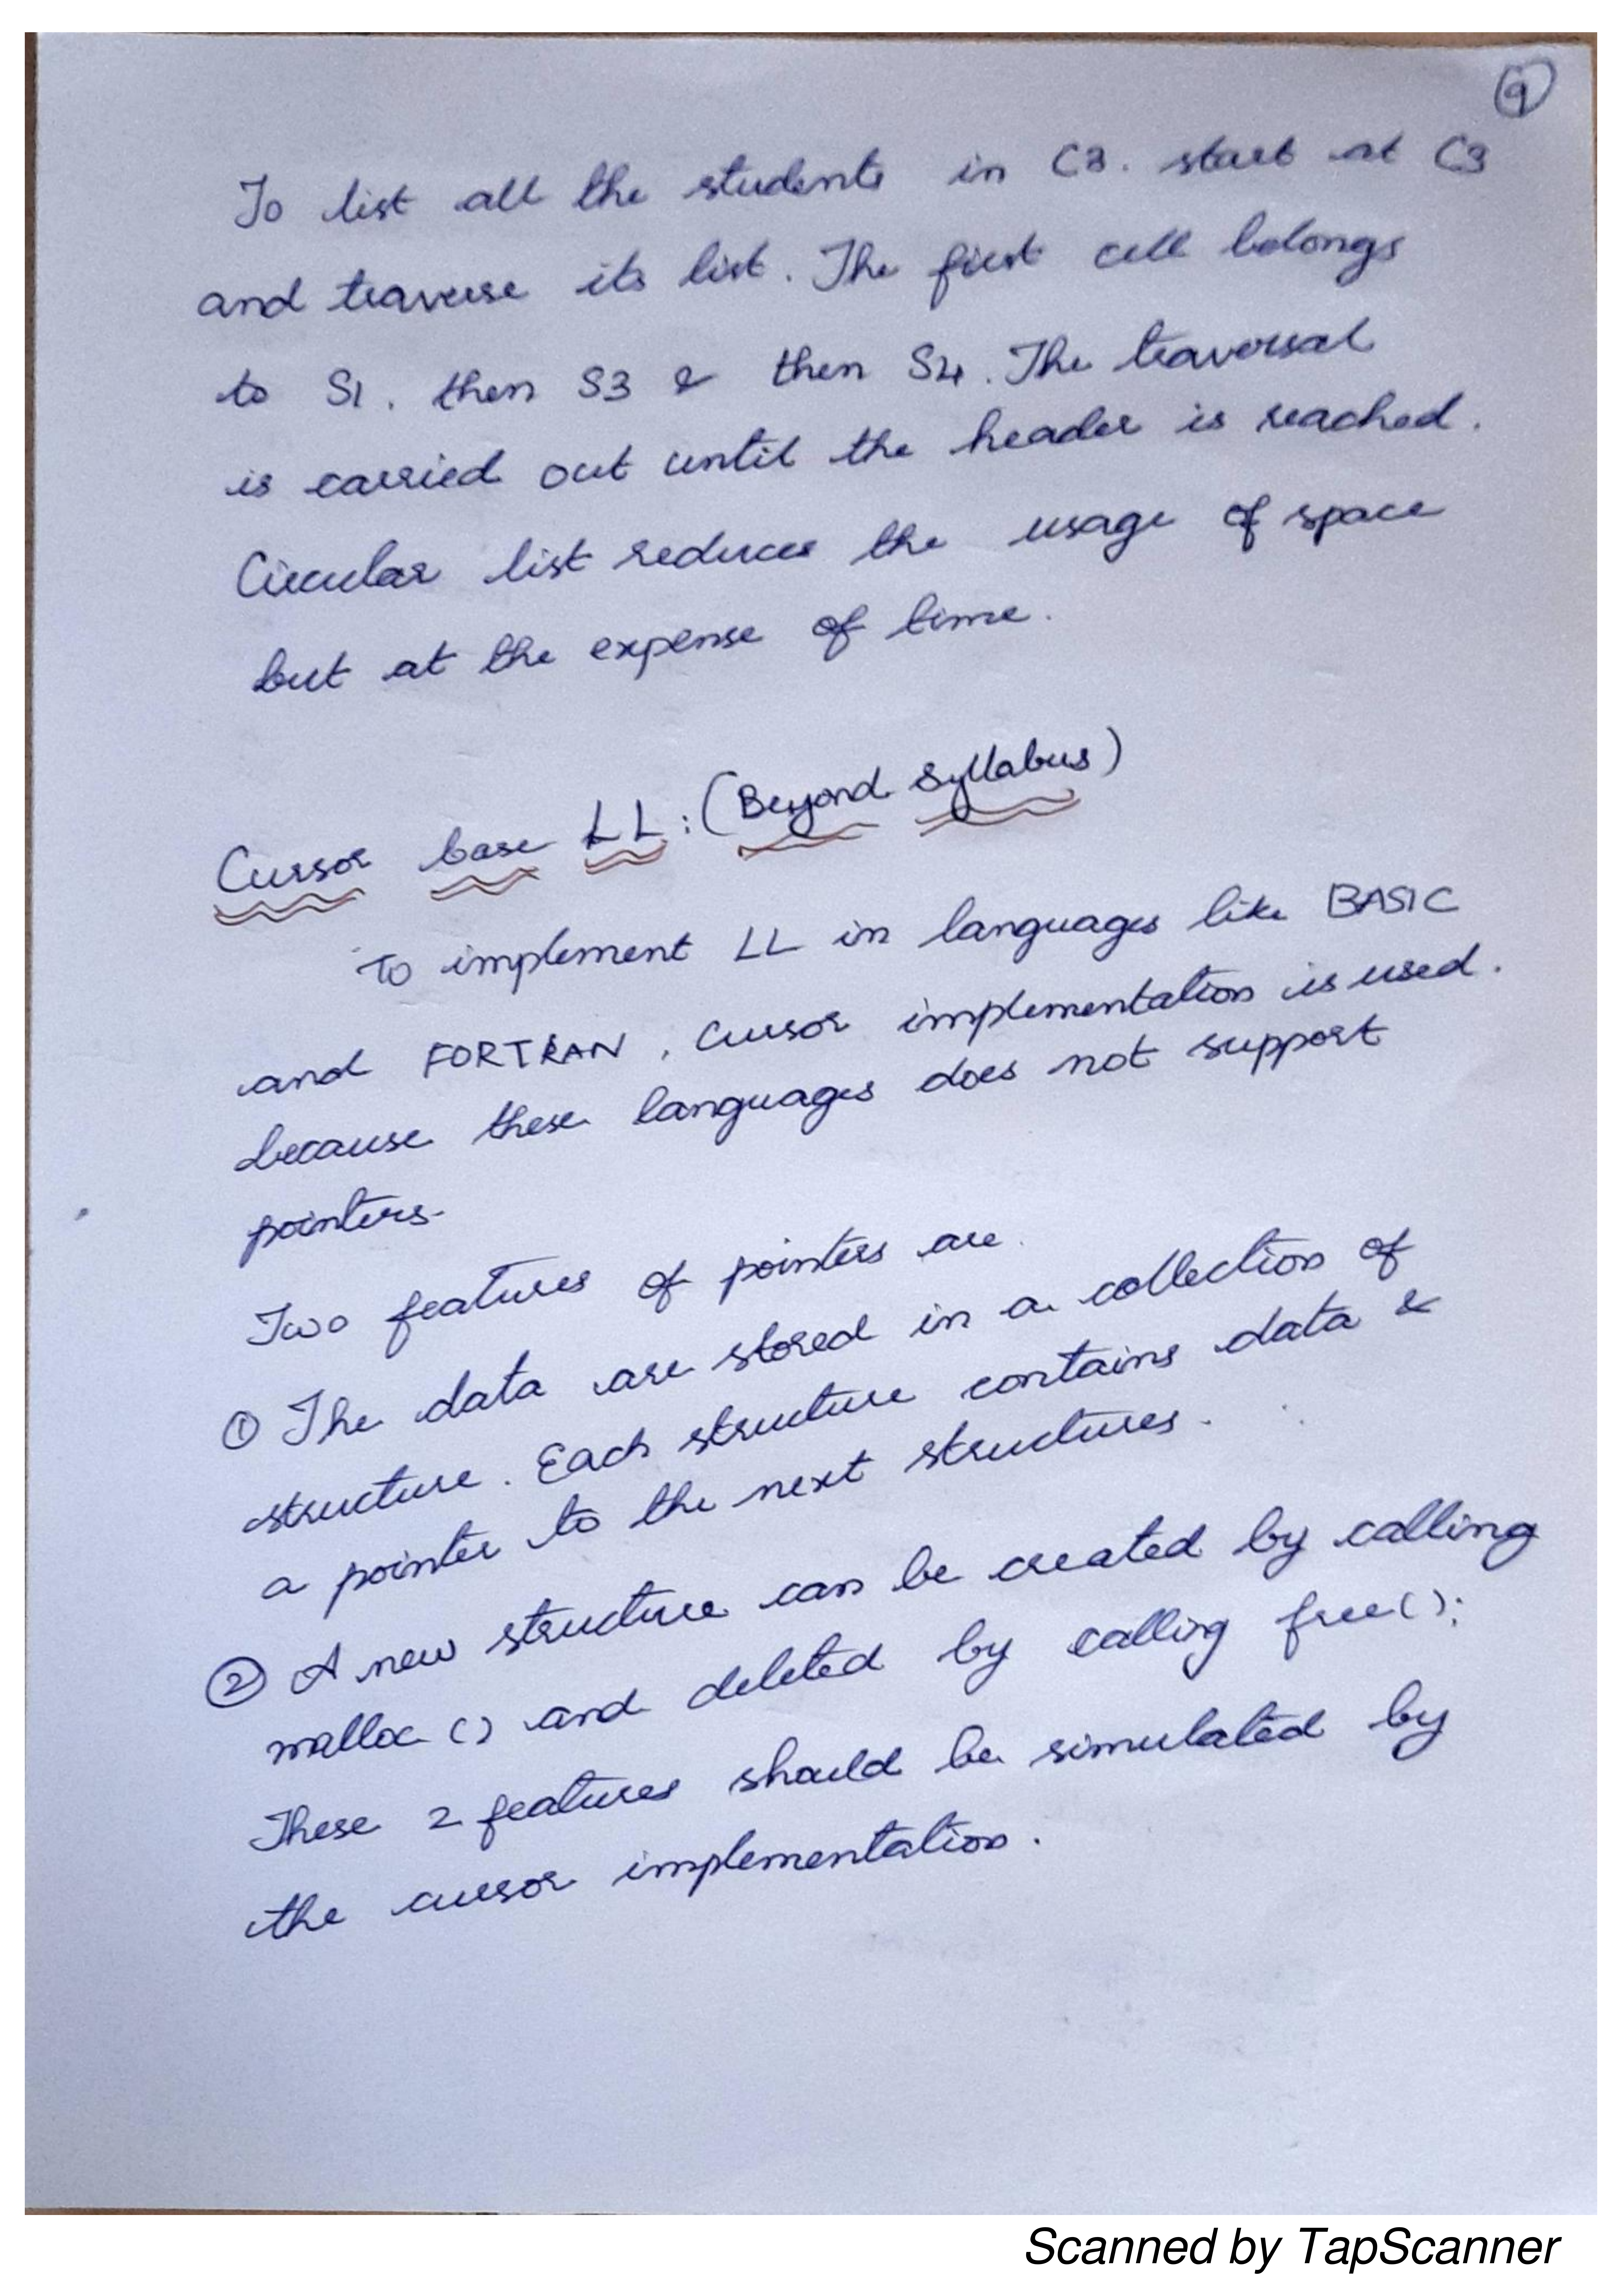 9
To list all the students in C3. start at C3
and traverse its list. The first cell belongs
to S1. then S3 & then S4. The traversal
is carried out until the header is reached.
Circular list reduces the usage of space
but at the expense of time.
Cursor base LL: (Beyond Syllabus)
To implement LL in languages like BASIC
and FORTRAN, Cursor implementation is used.
because these languages does not support
pointers.
Two features of pointers are.
① The data are stored in a collection of
structure. Each structure contains data &
a pointer to the next structures.
② A new structure can be created by calling
malloc () and deleted by calling free();
These 2 features should be simulated by
the cursor implementation.
Scanned by TapScanner